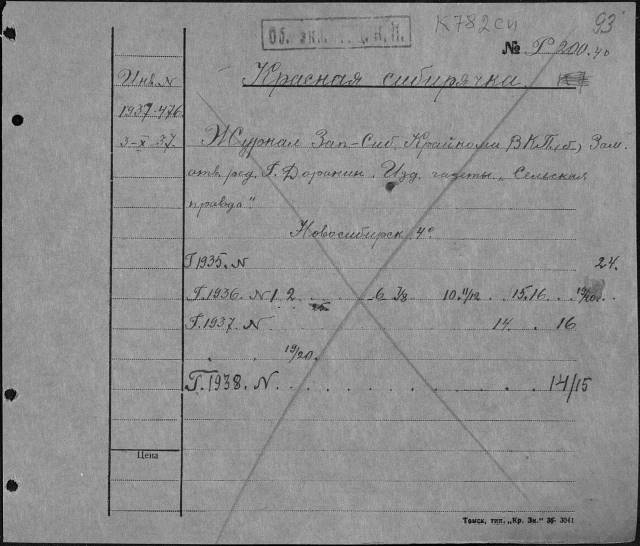 К782си 93
Об. экз.
№ Г 200.40
Красная сибирячка
Инв. N
1937-476
3-X 37.
Журнал Зап-Сиб. Крайкома ВКП(б), Зам.
отв. ред. Г. Доронин. Изд. газеты „Сельская
правда".
Новосибирск 4°
Г 1935. N 24.
Г. 1936. N 1 2 6 7/8 10. 11/12 15.16 19/20.
Г. 1937. N 14. 16
19/20.
Г. 1938. N. 14/15
Цена
Томск, тип. „Кр. Зн."